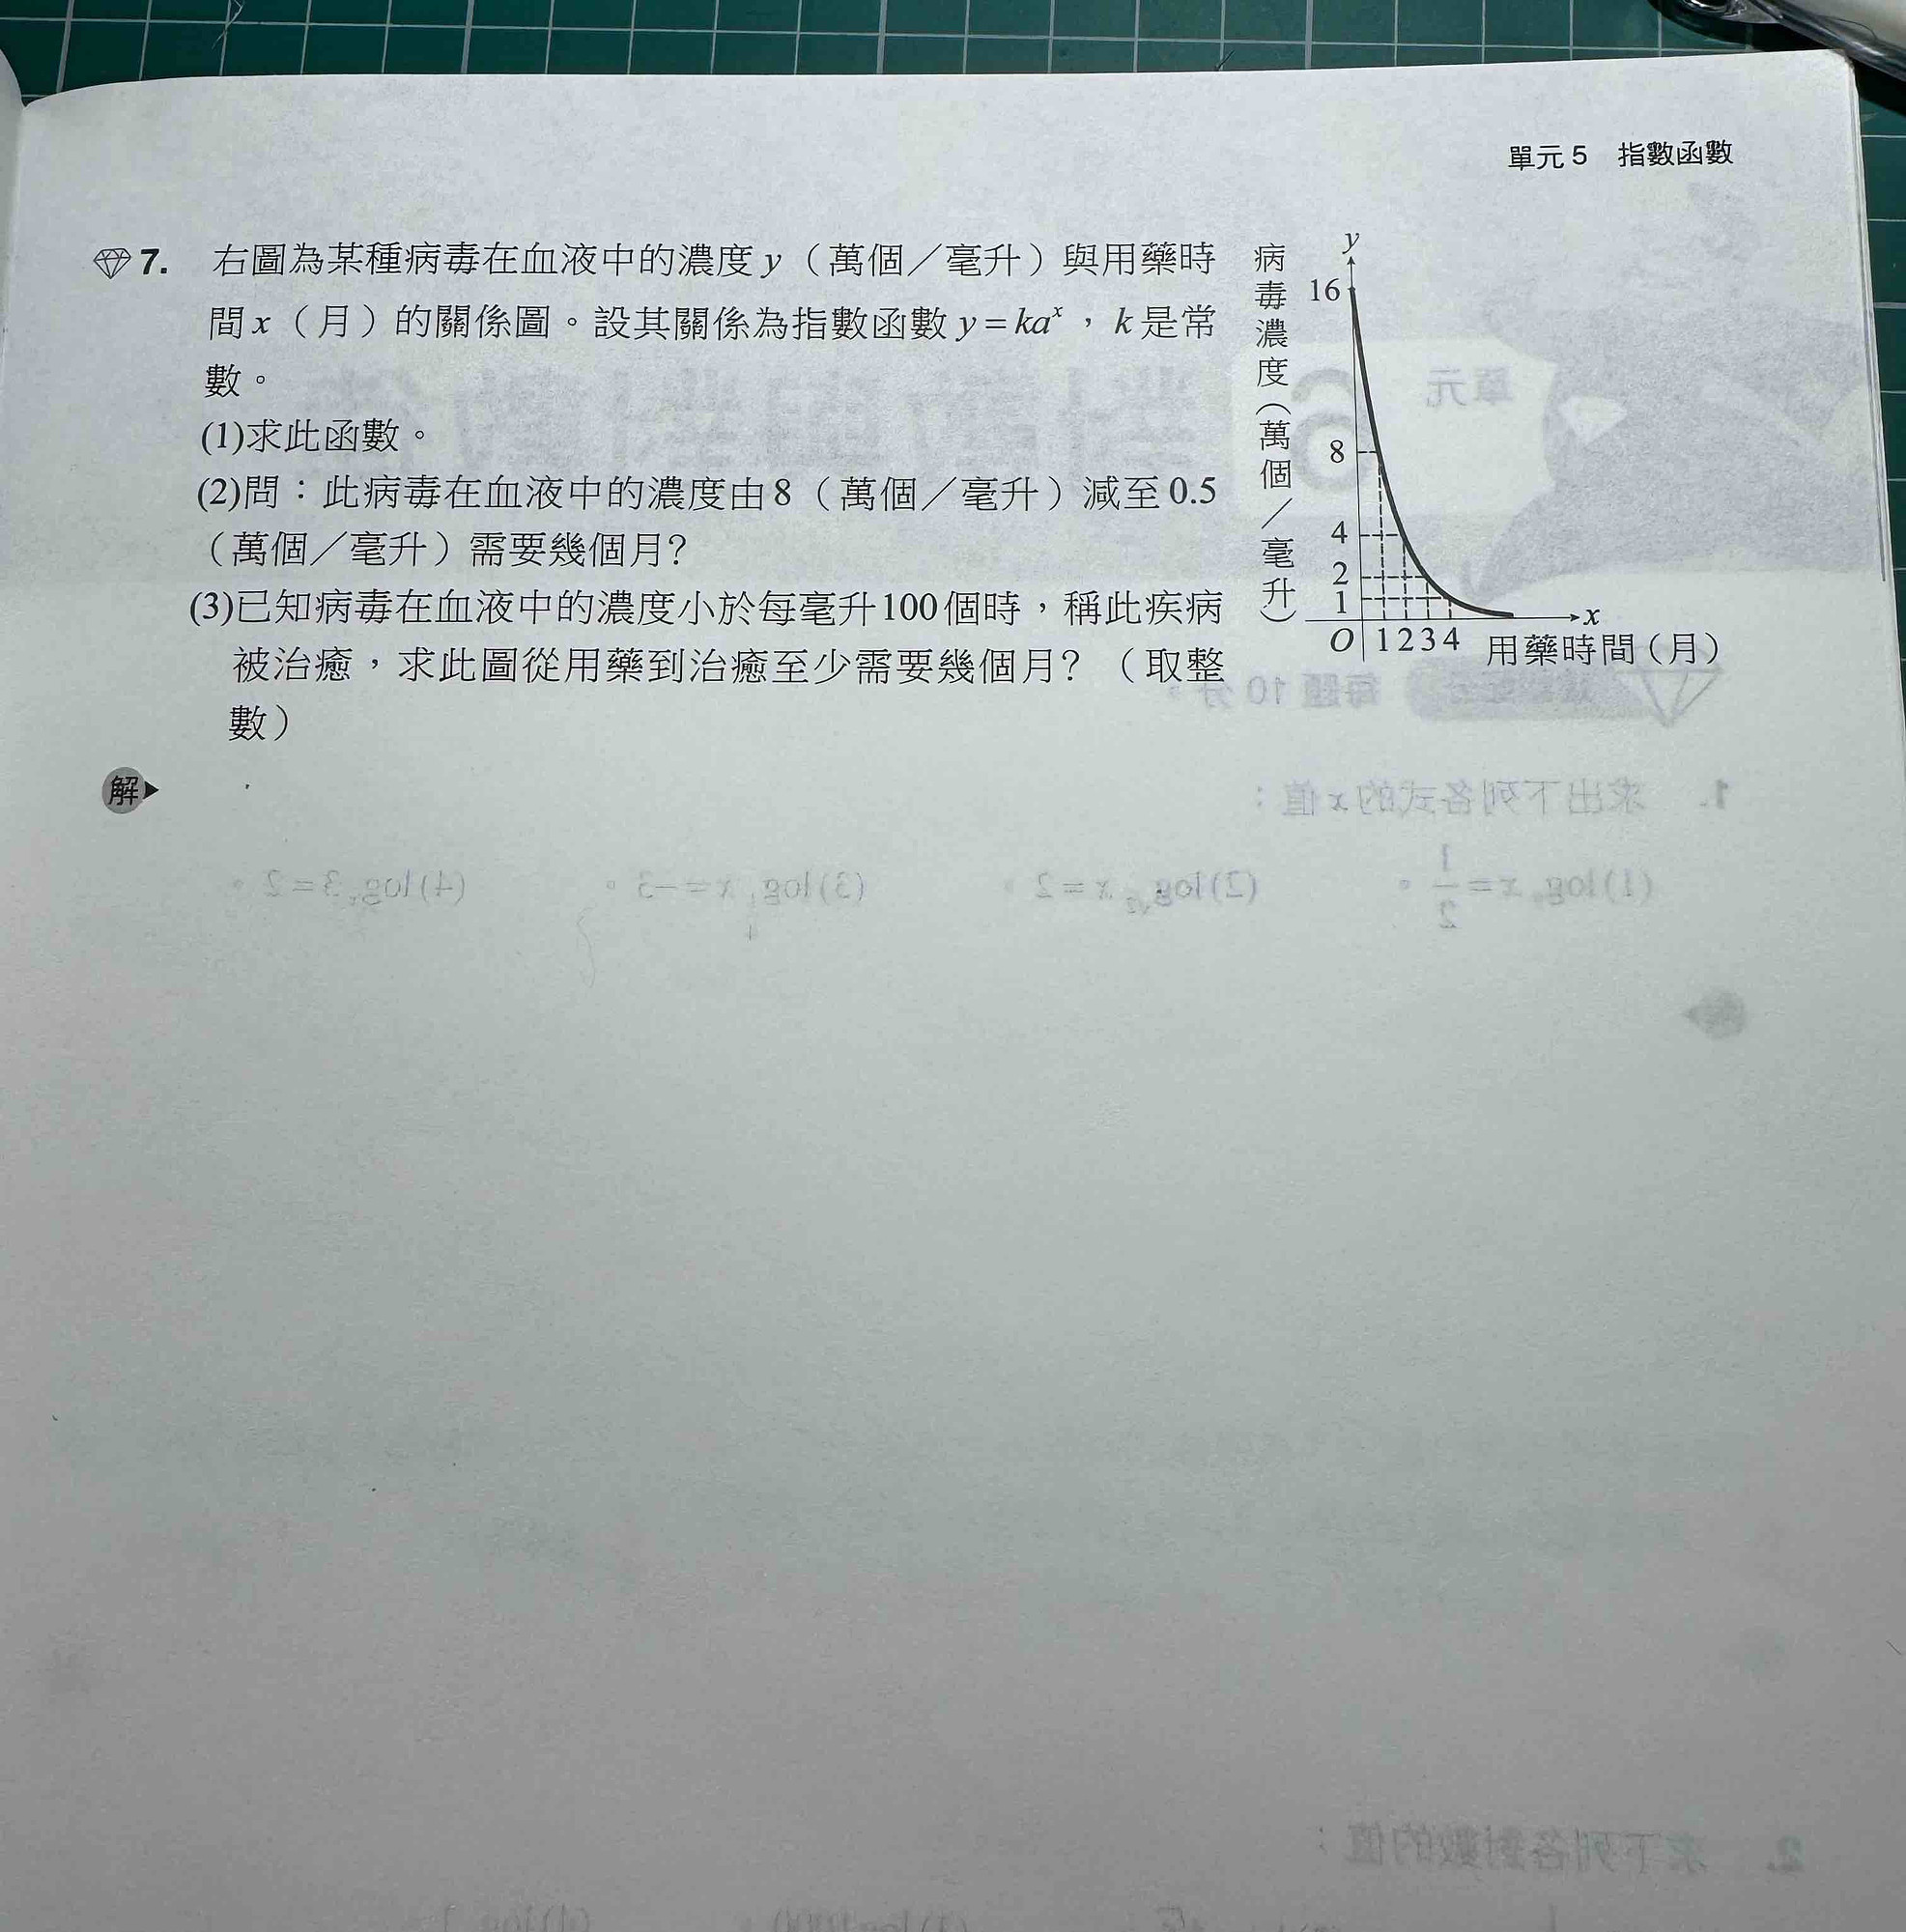 單元 5 指數函數
7. 右圖為某種病毒在血液中的濃度 y（萬個／毫升）與用藥時
間 x（月）的關係圖。設其關係為指數函數 y = kaˣ，k 是常
數。
(1)求此函數。
(2)問：此病毒在血液中的濃度由 8（萬個／毫升）減至 0.5
（萬個／毫升）需要幾個月？
(3)已知病毒在血液中的濃度小於每毫升 100 個時，稱此疾病
被治癒，求此圖從用藥到治癒至少需要幾個月？（取整
數）
病毒濃度（萬個／毫升）
y
16
8
4
2
1
x
O 1 2 3 4 用藥時間（月）
解
單元
6
每題 10 分。
1. 求出下列各式的 x 值：
2. 求下列各對數的值：